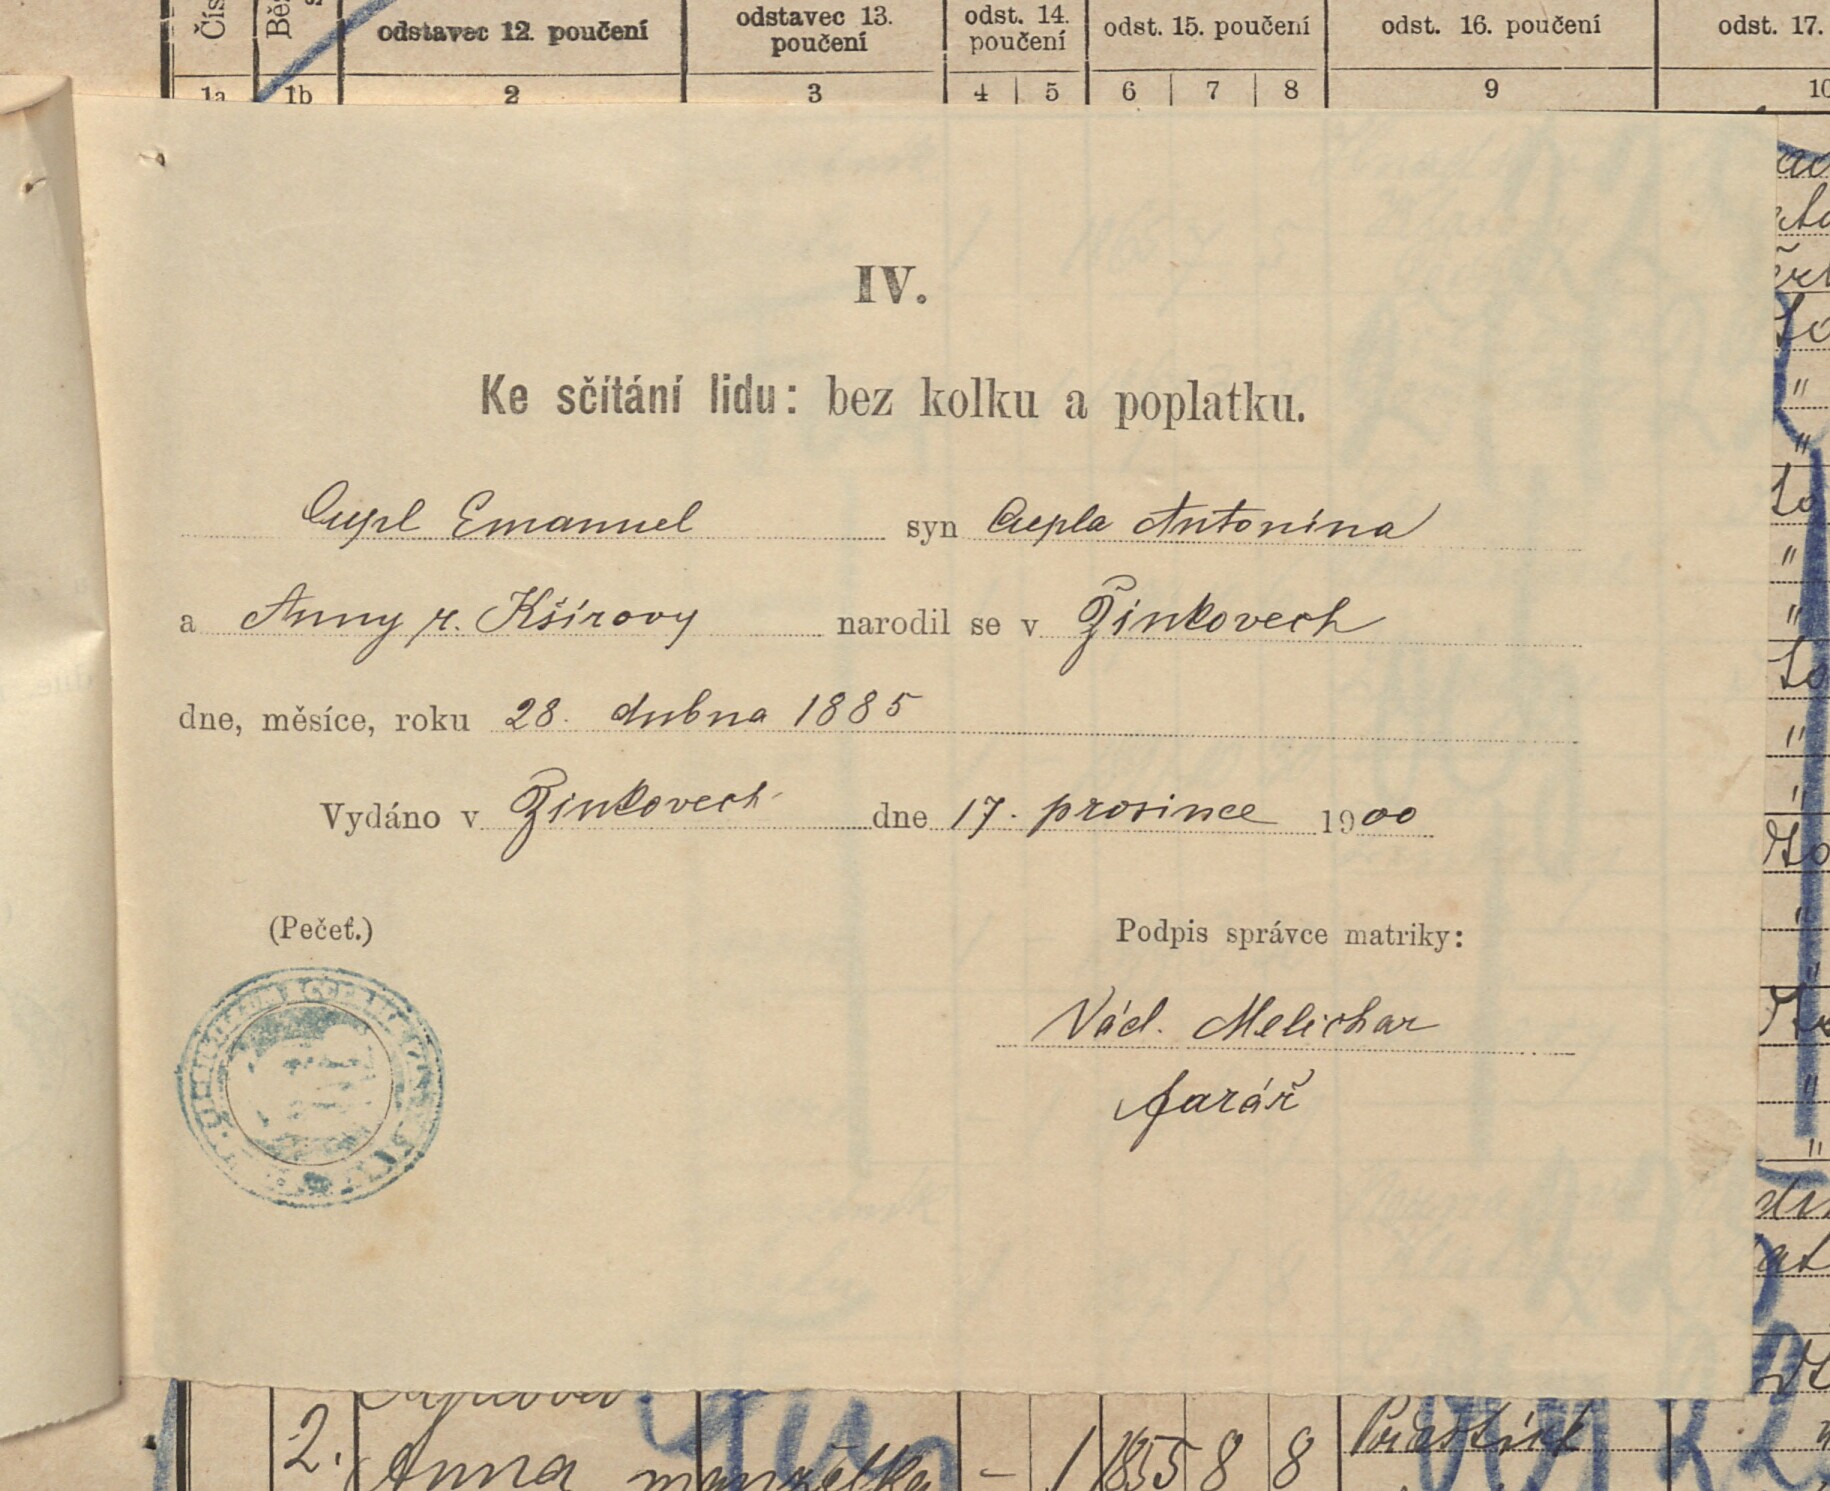 odstavec 12. poučení
odstavec 13. poučení
odst. 14. poučení
odst. 15. poučení
odst. 16. poučení
odst. 17.
1a 1b 2 3 4 5 6 7 8 9 10
IV.
Ke sčítání lidu: bez kolku a poplatku.
Cupl Emanuel syn Cupla Antonína
a Anny r. Kšírovy narodil se v Žinkovech
dne, měsíce, roku 28. dubna 1885
Vydáno v Žinkovech dne 17. prosince 1900
(Pečeť.)
Podpis správce matriky:
Václ. Melichar
farář
2. Anna manželka - 1 1855 8 8